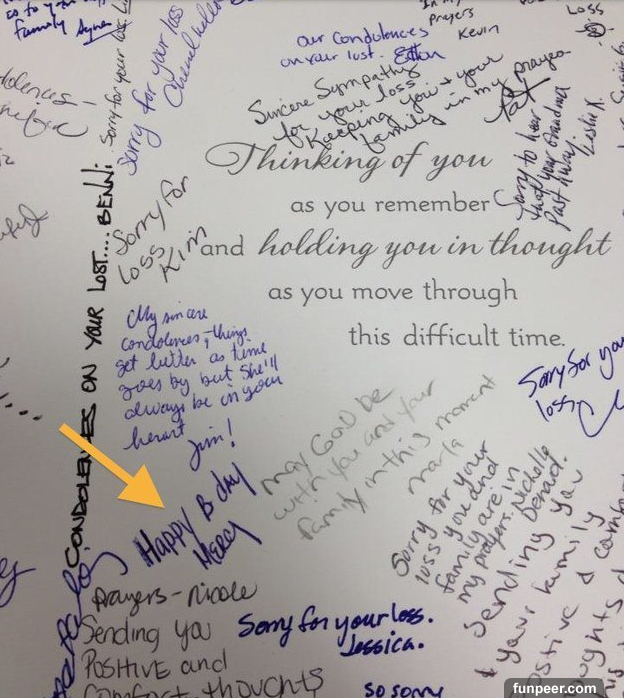 so to your
family Agnes
Sorry for your loss.
Sorry for your loss
our Condolences
on your lost. Ethan
Prayers
Kevin
Loss
Sincere Sympathy
for your loss.
Keeping you & your
family in my prayers
Pat
Sorry to hear
that your Grandma
Past away.
Leslie K.
Thinking of you
as you remember
and holding you in thought
as you move through
this difficult time.
CONDOLENCES ON YOUR LOST.... BENNI
Sorry for
loss
Kim
My sincere
condolences, things
get better as time
goes by but she'll
always be in your
heart
Jim!
Sorry for you
loss
May God be
with you and your
family in this moment
Marla
Happy B day
Mercy
Sorry for your
loss you and
family are in
my prayers. Nicholle
Sending you
& your family
positive & comfort
Prayers - Nicole
Sending you
POSITIVE and
Comfort thoughts
Sorry for your loss.
Jessica.
so sorry
funpeer.com